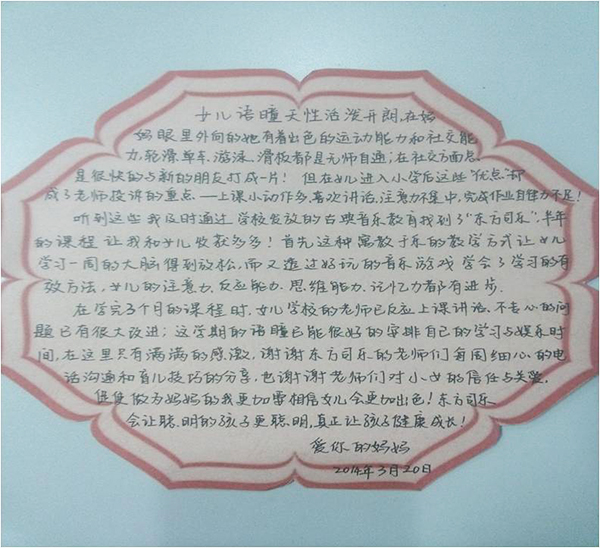 女儿语瞳天性活泼开朗,在妈
妈眼里外向的她有着出色的运动能力和社交能
力,轮滑.单车.游泳.滑板都是无师自通;在社交方面总
是很快的与新的朋友打成一片!但在女儿进入小学后这些“优点”却
成了老师投讲的重点——上课小动作多,喜欢讲话,注意力不集中,完成作业自律力不足!
听到这些我及时通过学校发放的古典音乐教育找到了“东方司乐”,半年
的课程让我和女儿收获多多!首先这种寓教于乐的教学方式让女儿
学习一周的大脑得到放松,而又透过好玩的音乐游戏学会了学习的有
效方法,女儿的注意力.反应能力.思维能力.记忆力都有进步.
在学完3个月的课程时,女儿学校的老师已反应上课讲话.不专心的问
题已有很大改进;这学期的语瞳已能很好的安排自己的学习与娱乐时
间,在这里只有满满的感激,谢谢东方司乐的老师们每周细心的电
话沟通和育儿技巧的分享,也谢谢老师们对小女的信任与关爱,
促使做为妈妈的我更加要相信女儿会更加出色!东方司乐
会让聪明的孩子更聪明,真正让孩子健康成长!
爱你的妈妈
2014年3月20日